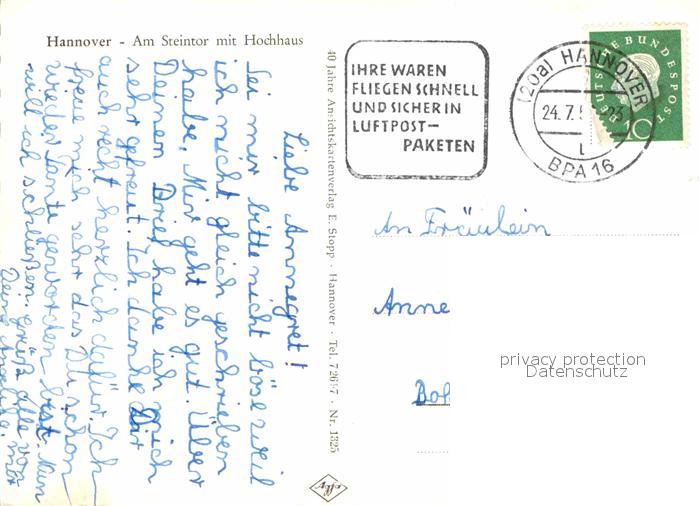 Hannover - Am Steintor mit Hochhaus
Liebe Annegret!
Sei mir bitte nicht böse weil
ich nicht gleich geschrieben
habe. Mir geht es gut. Über
Deinen Brief habe ich mich
sehr gefreut. Ich danke Dir
auch recht herzlich dafür. Ich
freue mich sehr das Du schon
wieder Tante geworden bist. Nun
will ich schließen. grüß alle von
Deine mir
40 Jahre Ansichtskartenverlag E. Stopp · Hannover · Tel. 72657 · Nr. 1325
IHRE WAREN
FLIEGEN SCHNELL
UND SICHER IN
LUFTPOST-
PAKETEN
(20a) HANNOVER
24.7.5
BPA 16
DEUTSCHE BUNDESPOST
10
An Fräulein
Anne
privacy protection
Datenschutz
Dol